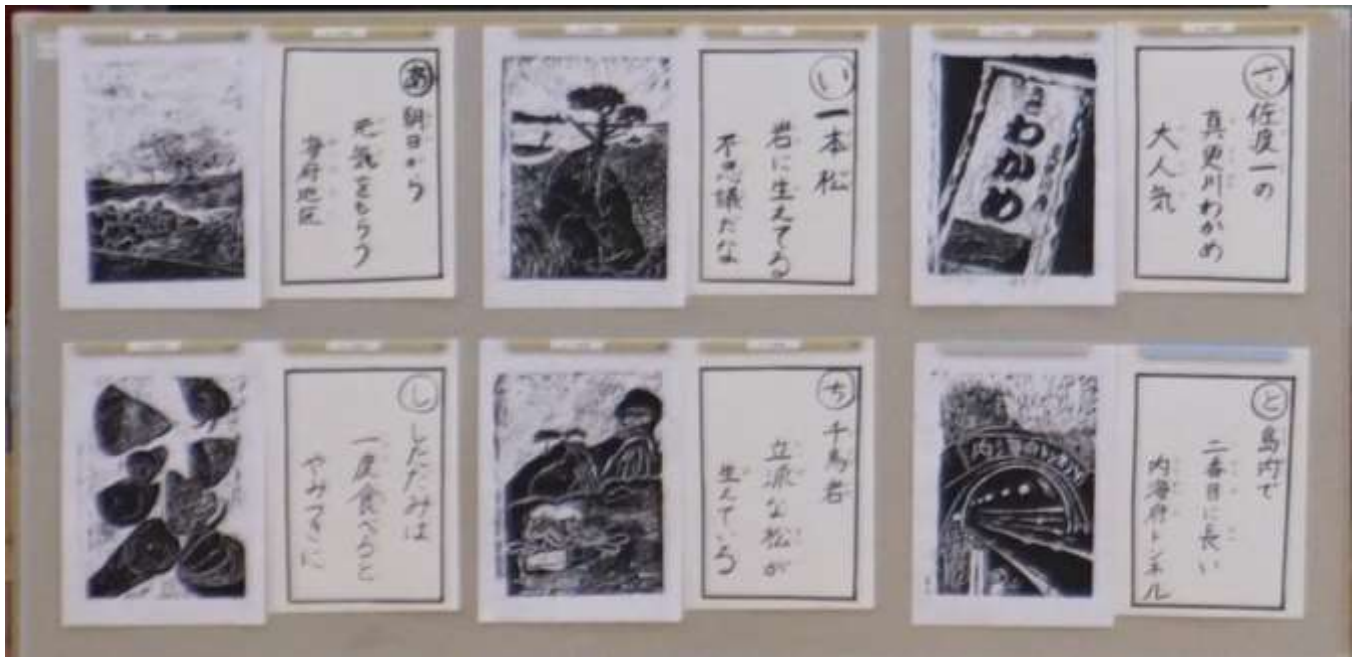 あ
朝日から
元気をもらう
海府地区
い
一本松
岩に生えてる
不思議だな
わかめ
さ
佐渡一の
真更川わかめ
大人気
し
しただみは
一度食べると
やみつきに
ち
立派な松が
生えている
と
島内で
二番目に長い
内海府トンネル